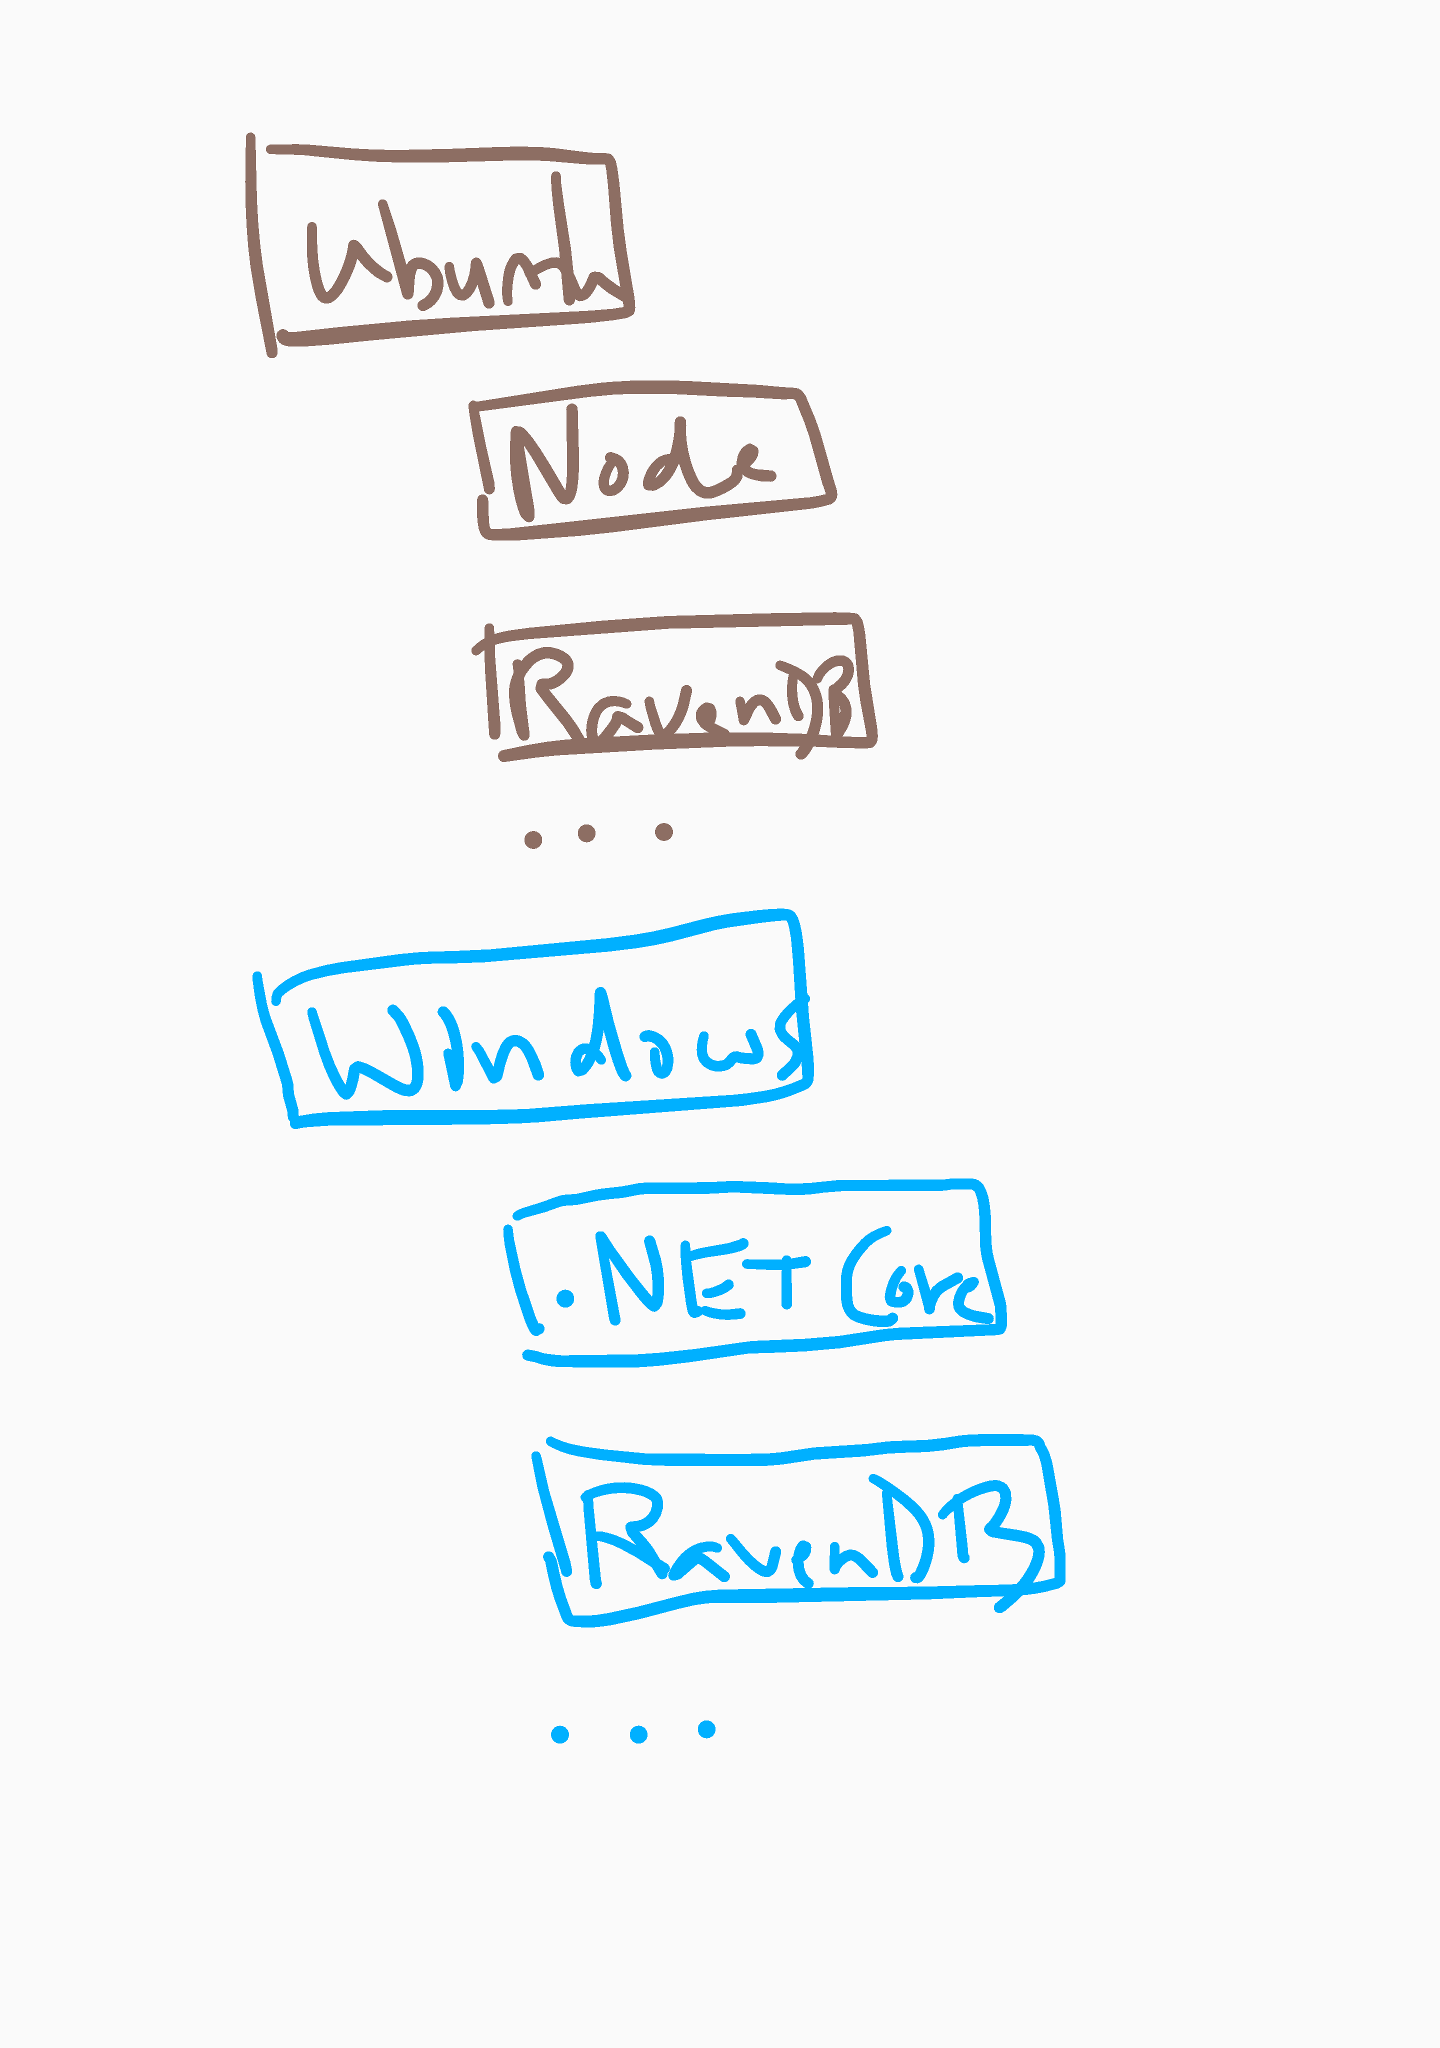 Ubuntu
Node
RavenDB
...
Windows
.NET Core
RavenDB
...